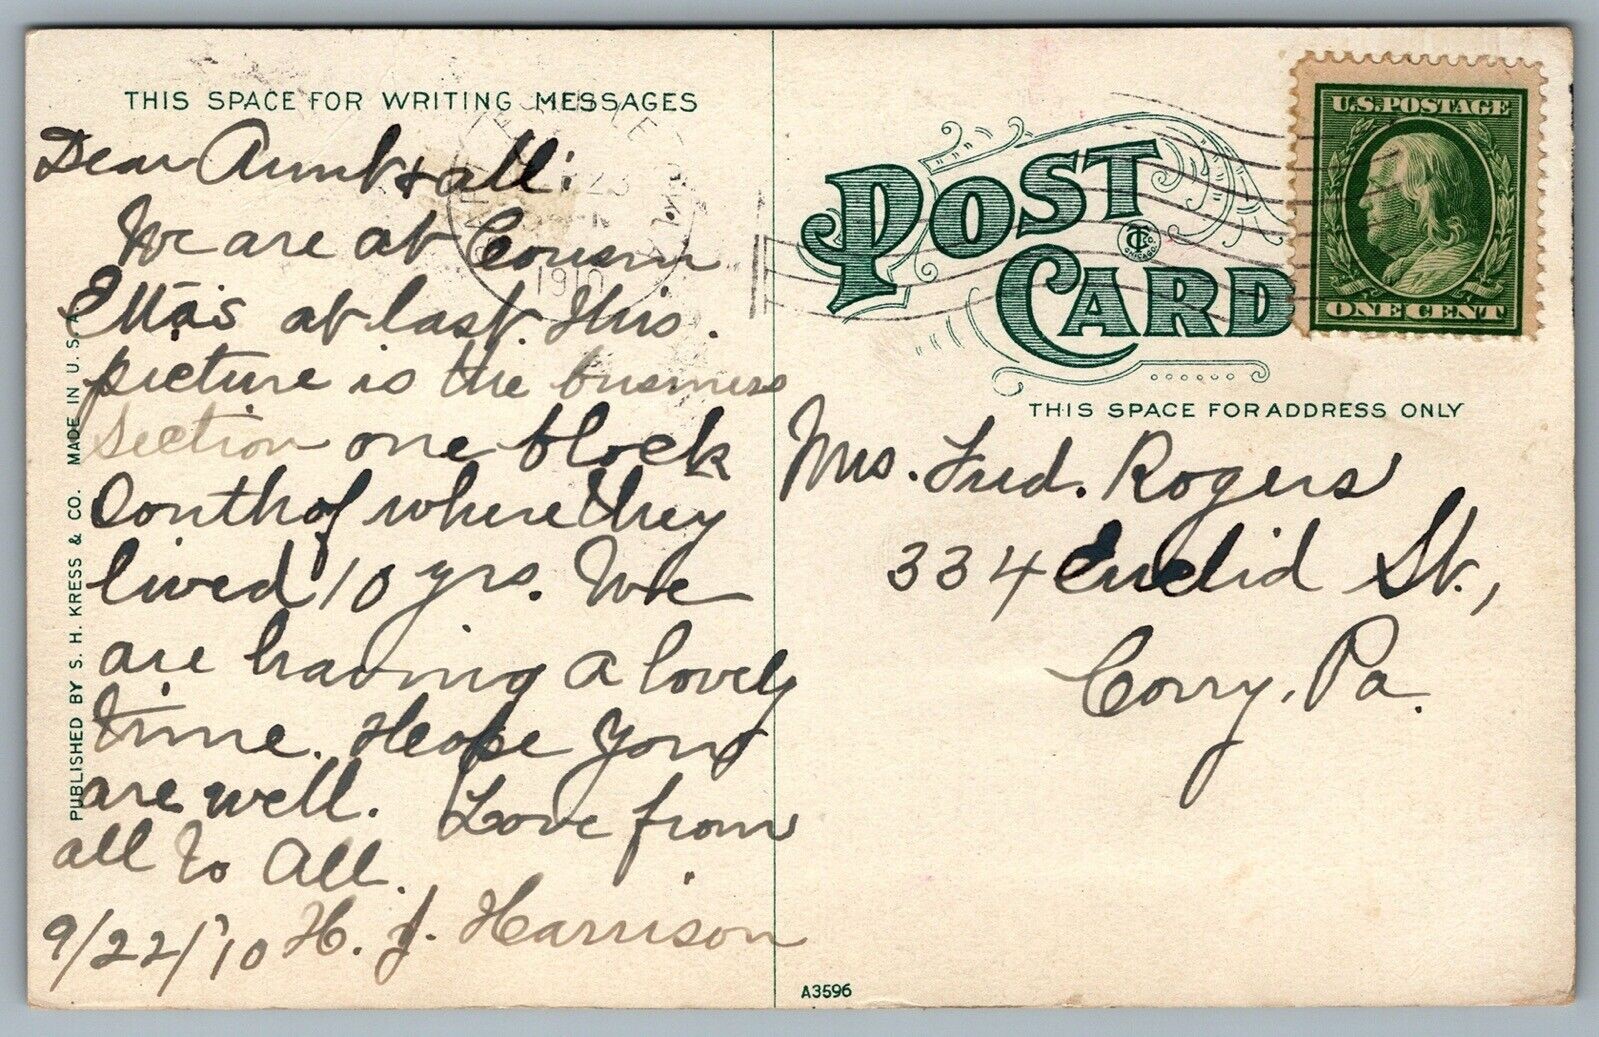 THIS SPACE FOR WRITING MESSAGES
Dear Aunt & all:
We are at Cousin
Etta's at last. This.
picture is the business
section one block
South of where they
lived 10 yrs. We
are having a lovely
time. Hope you
are well. Love from
all to All.
9/22/'10 H. J. Harrison
PUBLISHED BY S. H. KRESS & CO. MADE IN U. S. A.
1910
POST
CARD
U.S. POSTAGE
ONE CENT
THIS SPACE FOR ADDRESS ONLY
Mrs. Fred. Rogers
334 Euclid St.,
Corry, Pa.
A3596